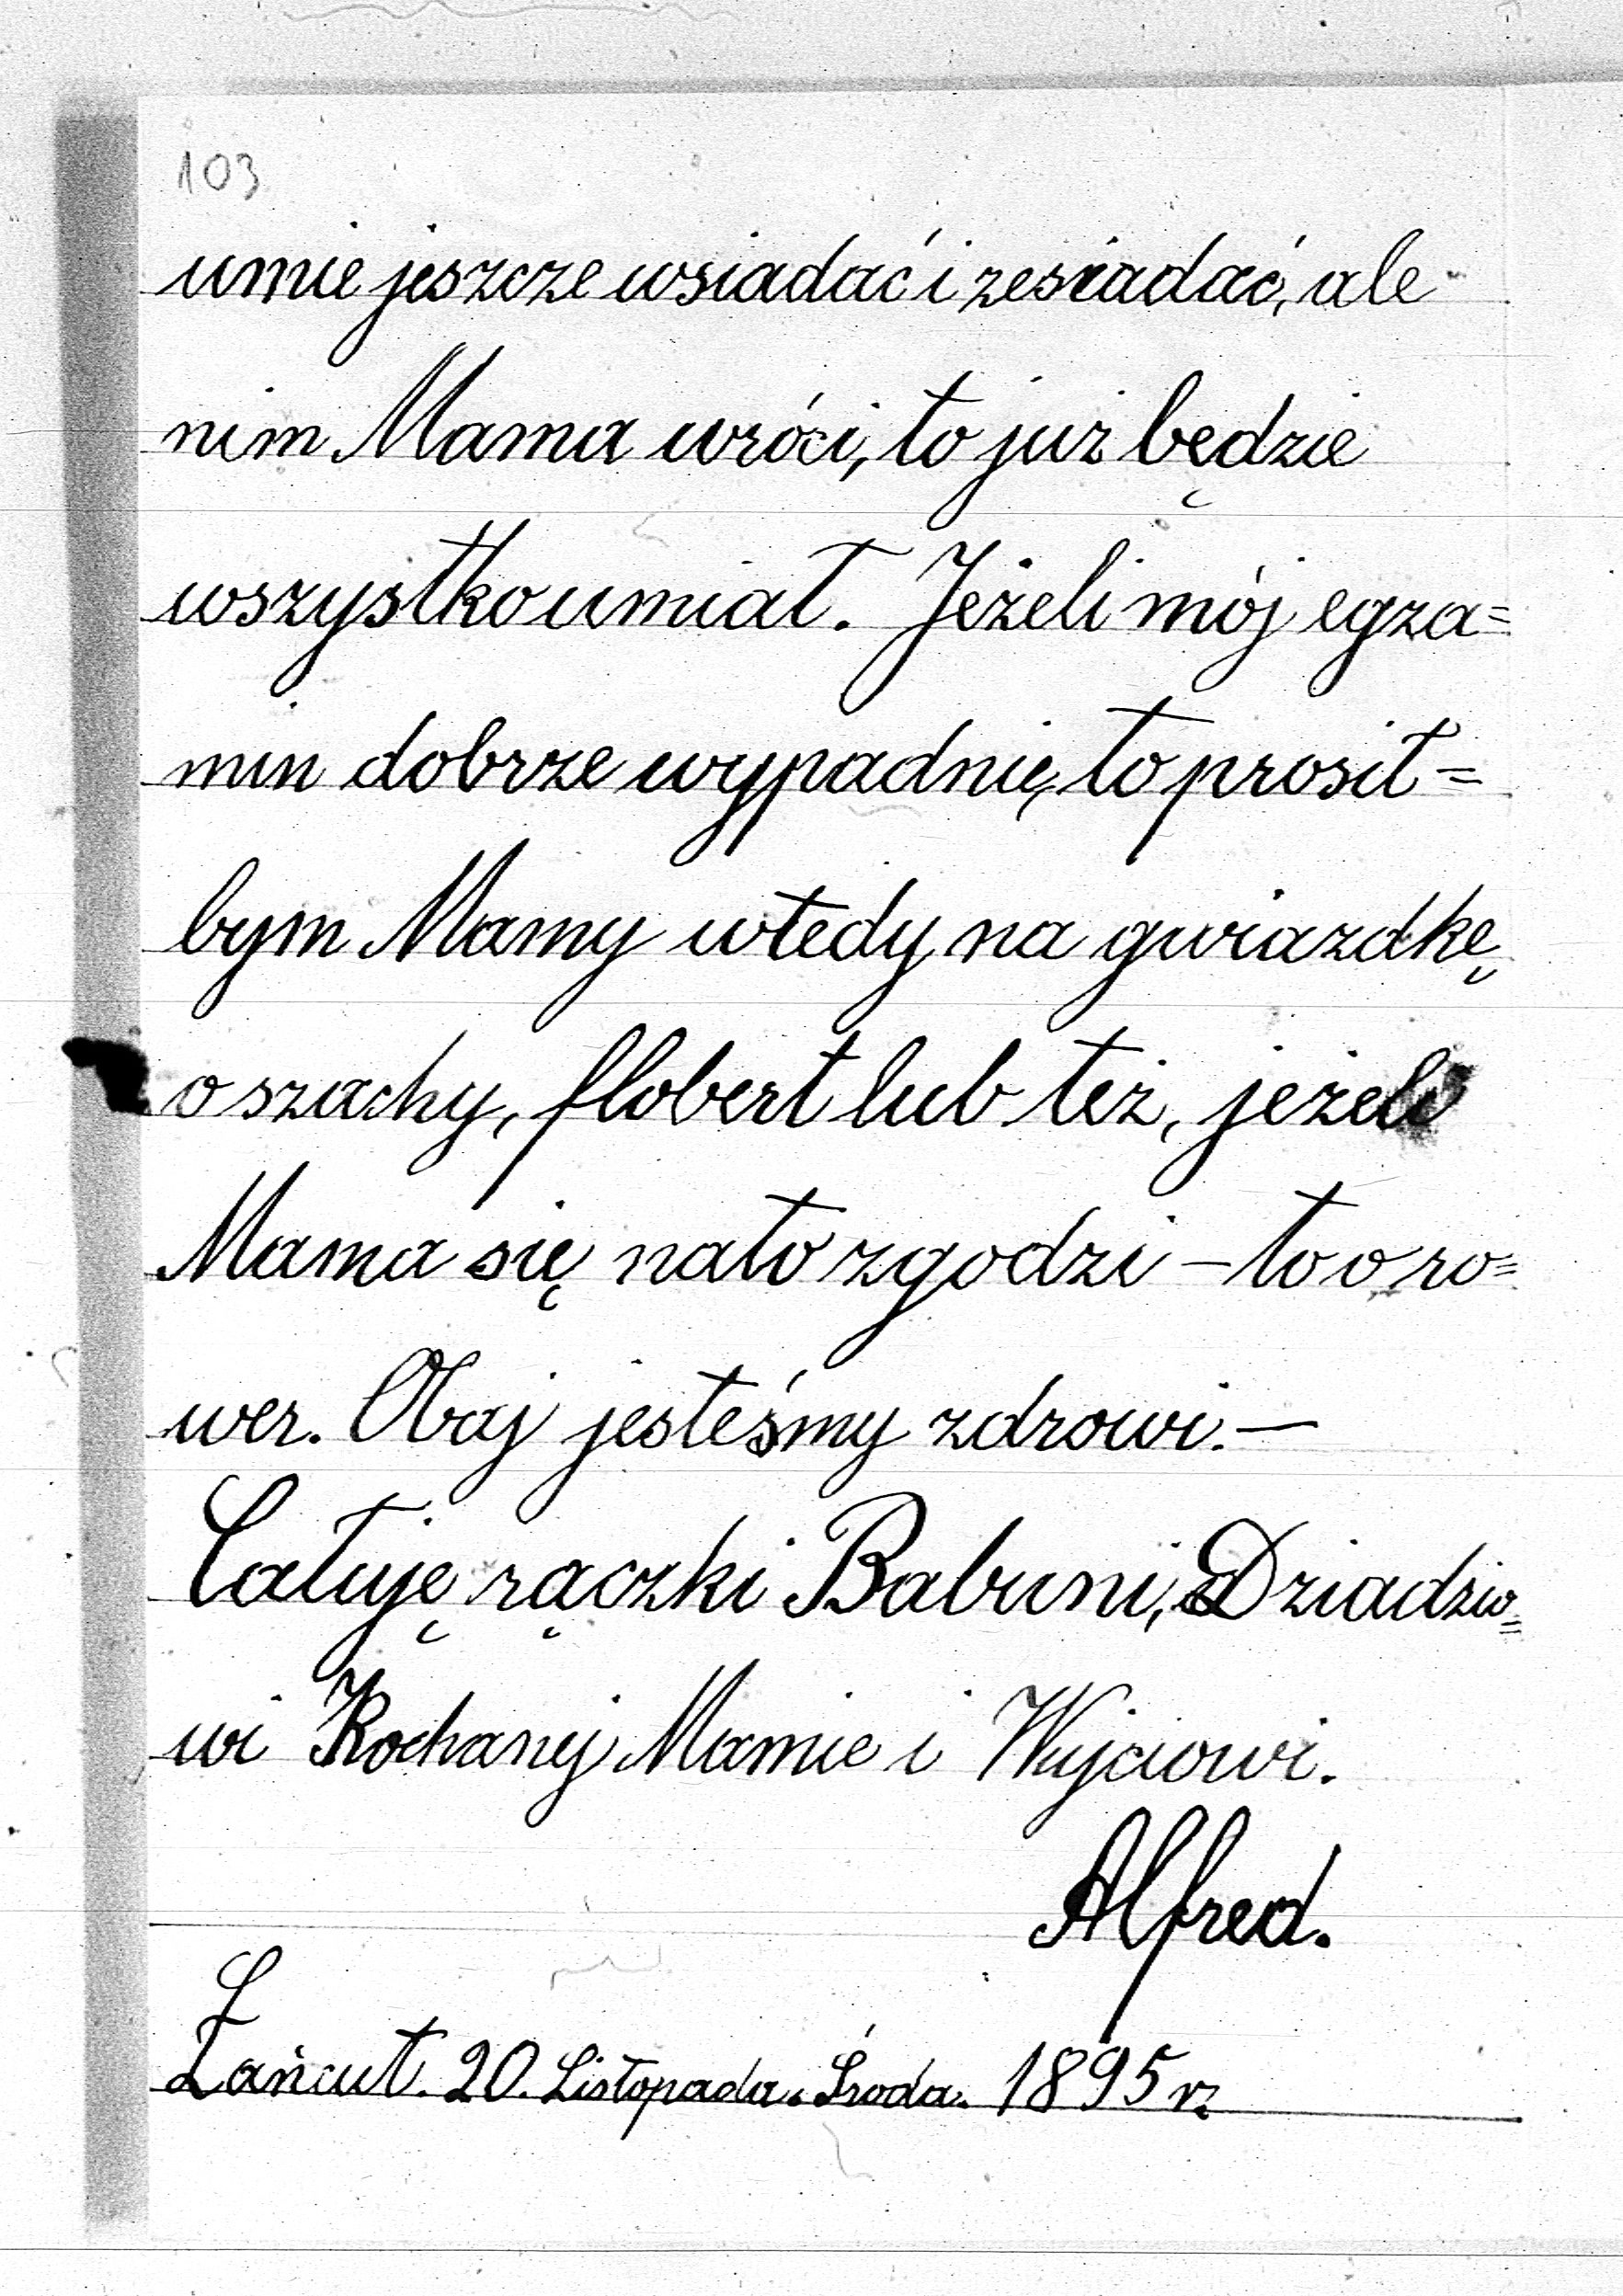 103
umie jeszcze wsiadać i zesiadać, ale
nim Mama wróci, to już będzie
wszystko umiał. Jeżeli mój egza=
min dobrze wypadnie, to prosił=
bym Mamy wtedy na gwiazdkę
o szachy, flobert lub też, jeżeli
Mama się nato zgodzi – to o ro=
wer. Obaj jesteśmy zdrowi. –
Całuję rączki Babuni, Dziadzio=
wi Kochanej Mamie i Wujciowi.
Alfred.
Łańcut. 20. Listopada. Środa. 1895 r.